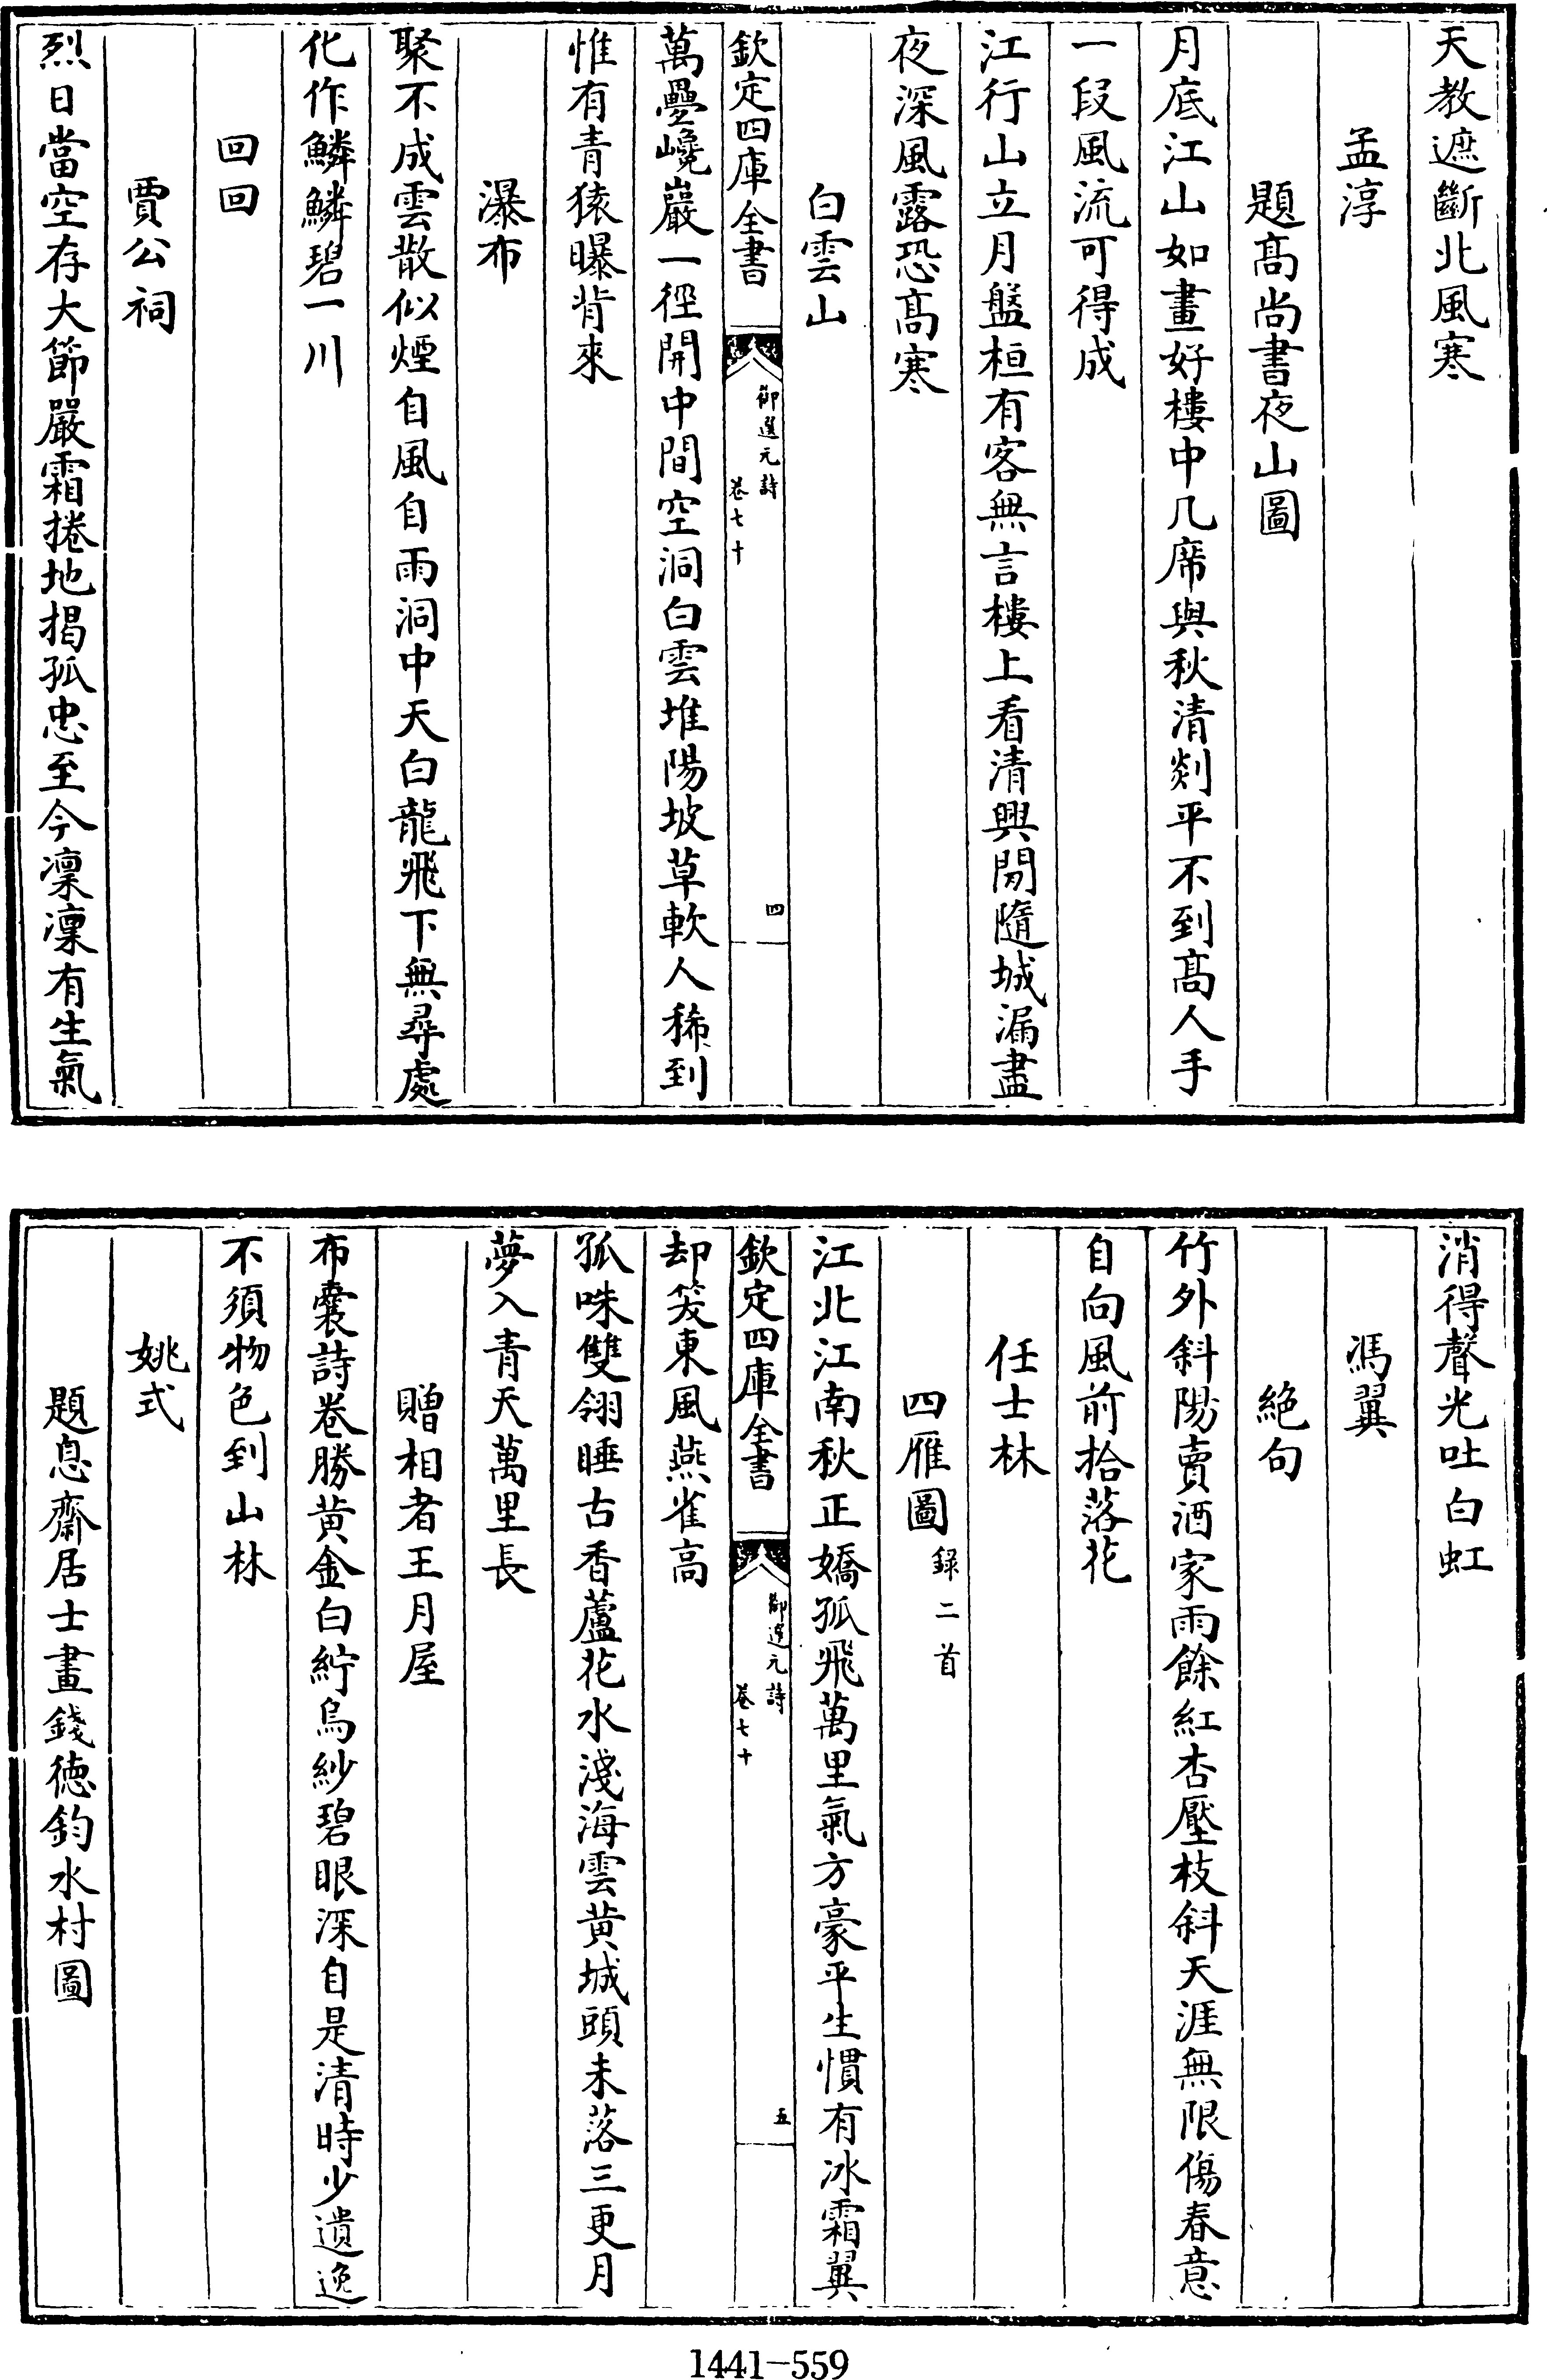 天教遮斷北風寒
孟淳
題髙尚書夜山圖
月底江山如畫好樓中几席與秋清剡平不到髙人手
一段風流可得成
江行山立月盤桓有客無言樓上看清興閒隨城漏盡
夜深風露恐髙寒
白雲山
欽定四庫全書
御選元詩
卷七十
四
萬疊巉巖一徑開中間空洞白雲堆陽坡草軟人稀到
惟有青猿曝背來
瀑布
聚不成雲散似煙自風自雨洞中天白龍飛下無尋處
化作鱗鱗碧一川
回回
賈公祠
烈日當空存大節嚴霜捲地揭孤忠至今凜凜有生氣
消得聲光吐白虹
馮翼
絶句
竹外斜陽賣酒家雨餘紅杏壓枝斜天涯無限傷春意
自向風前拾落花
任士林
四雁圖 録二首
江北江南秋正嬌孤飛萬里氣方豪平生慣有冰霜翼
欽定四庫全書
御選元詩
卷七十
五
却笑東風燕雀高
孤咮雙翎睡古香蘆花水淺海雲黄城頭未落三更月
夢入青天萬里長
贈相者王月屋
布囊詩卷勝黄金白紵烏紗碧眼深自是清時少遺逸
不須物色到山林
姚式
題息齋居士畫錢徳鈞水村圖
1441-559